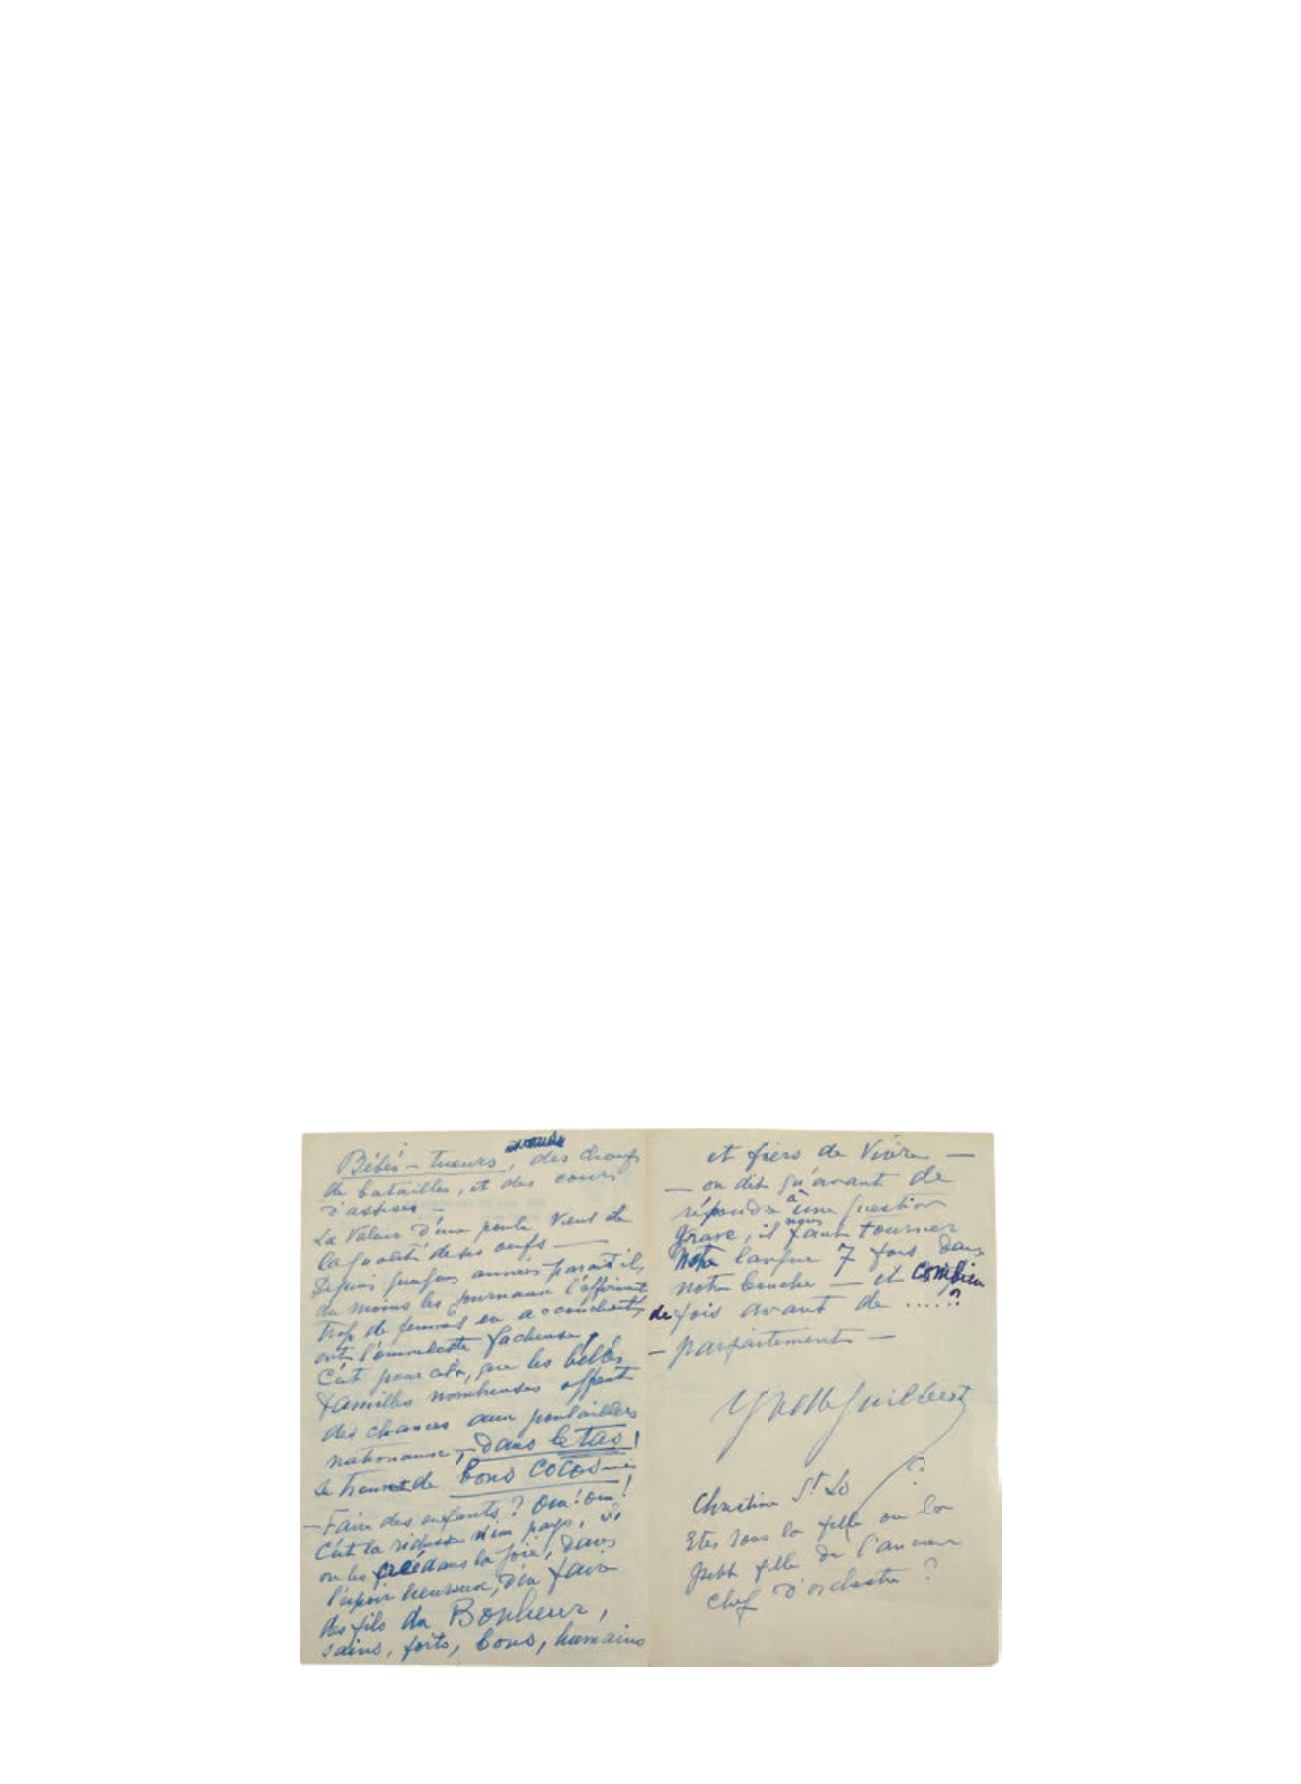 Bébés-tueurs, des champs
de batailles, et des cours
d'assises —
La Valeur d'une poule vient de
la qualité de ses oeufs —
Depuis quelques années parait il,
du moins les journaux l'affirment
trop de femmes en accouchant,
ont l'omelette facheuse,
C'est pour cela, que les belles
familles nombreuses offrent
des chances aux poulaillers
nationaux, — dans le tas!
se trouvent de bons cocos —
— Faire des enfants? Oui! Oui!
C'est la richesse d'un pays, si
on les crée dans la joie, dans
l'espoir heureux, d'en faire
des fils du Bonheur,
sains, forts, bons, humains
et fiers de Vivre —
— on dit qu'avant de
répondre à une question
grave, il nous faut tourner
Notre langue 7 fois dans
notre bouche — et combien
de fois avant de .....?
— parfaitement —
Yvette Guilbert
Christine St Lo ?
Etes vous la fille ou la
petite fille de l'ancien
chef d'orchestre?